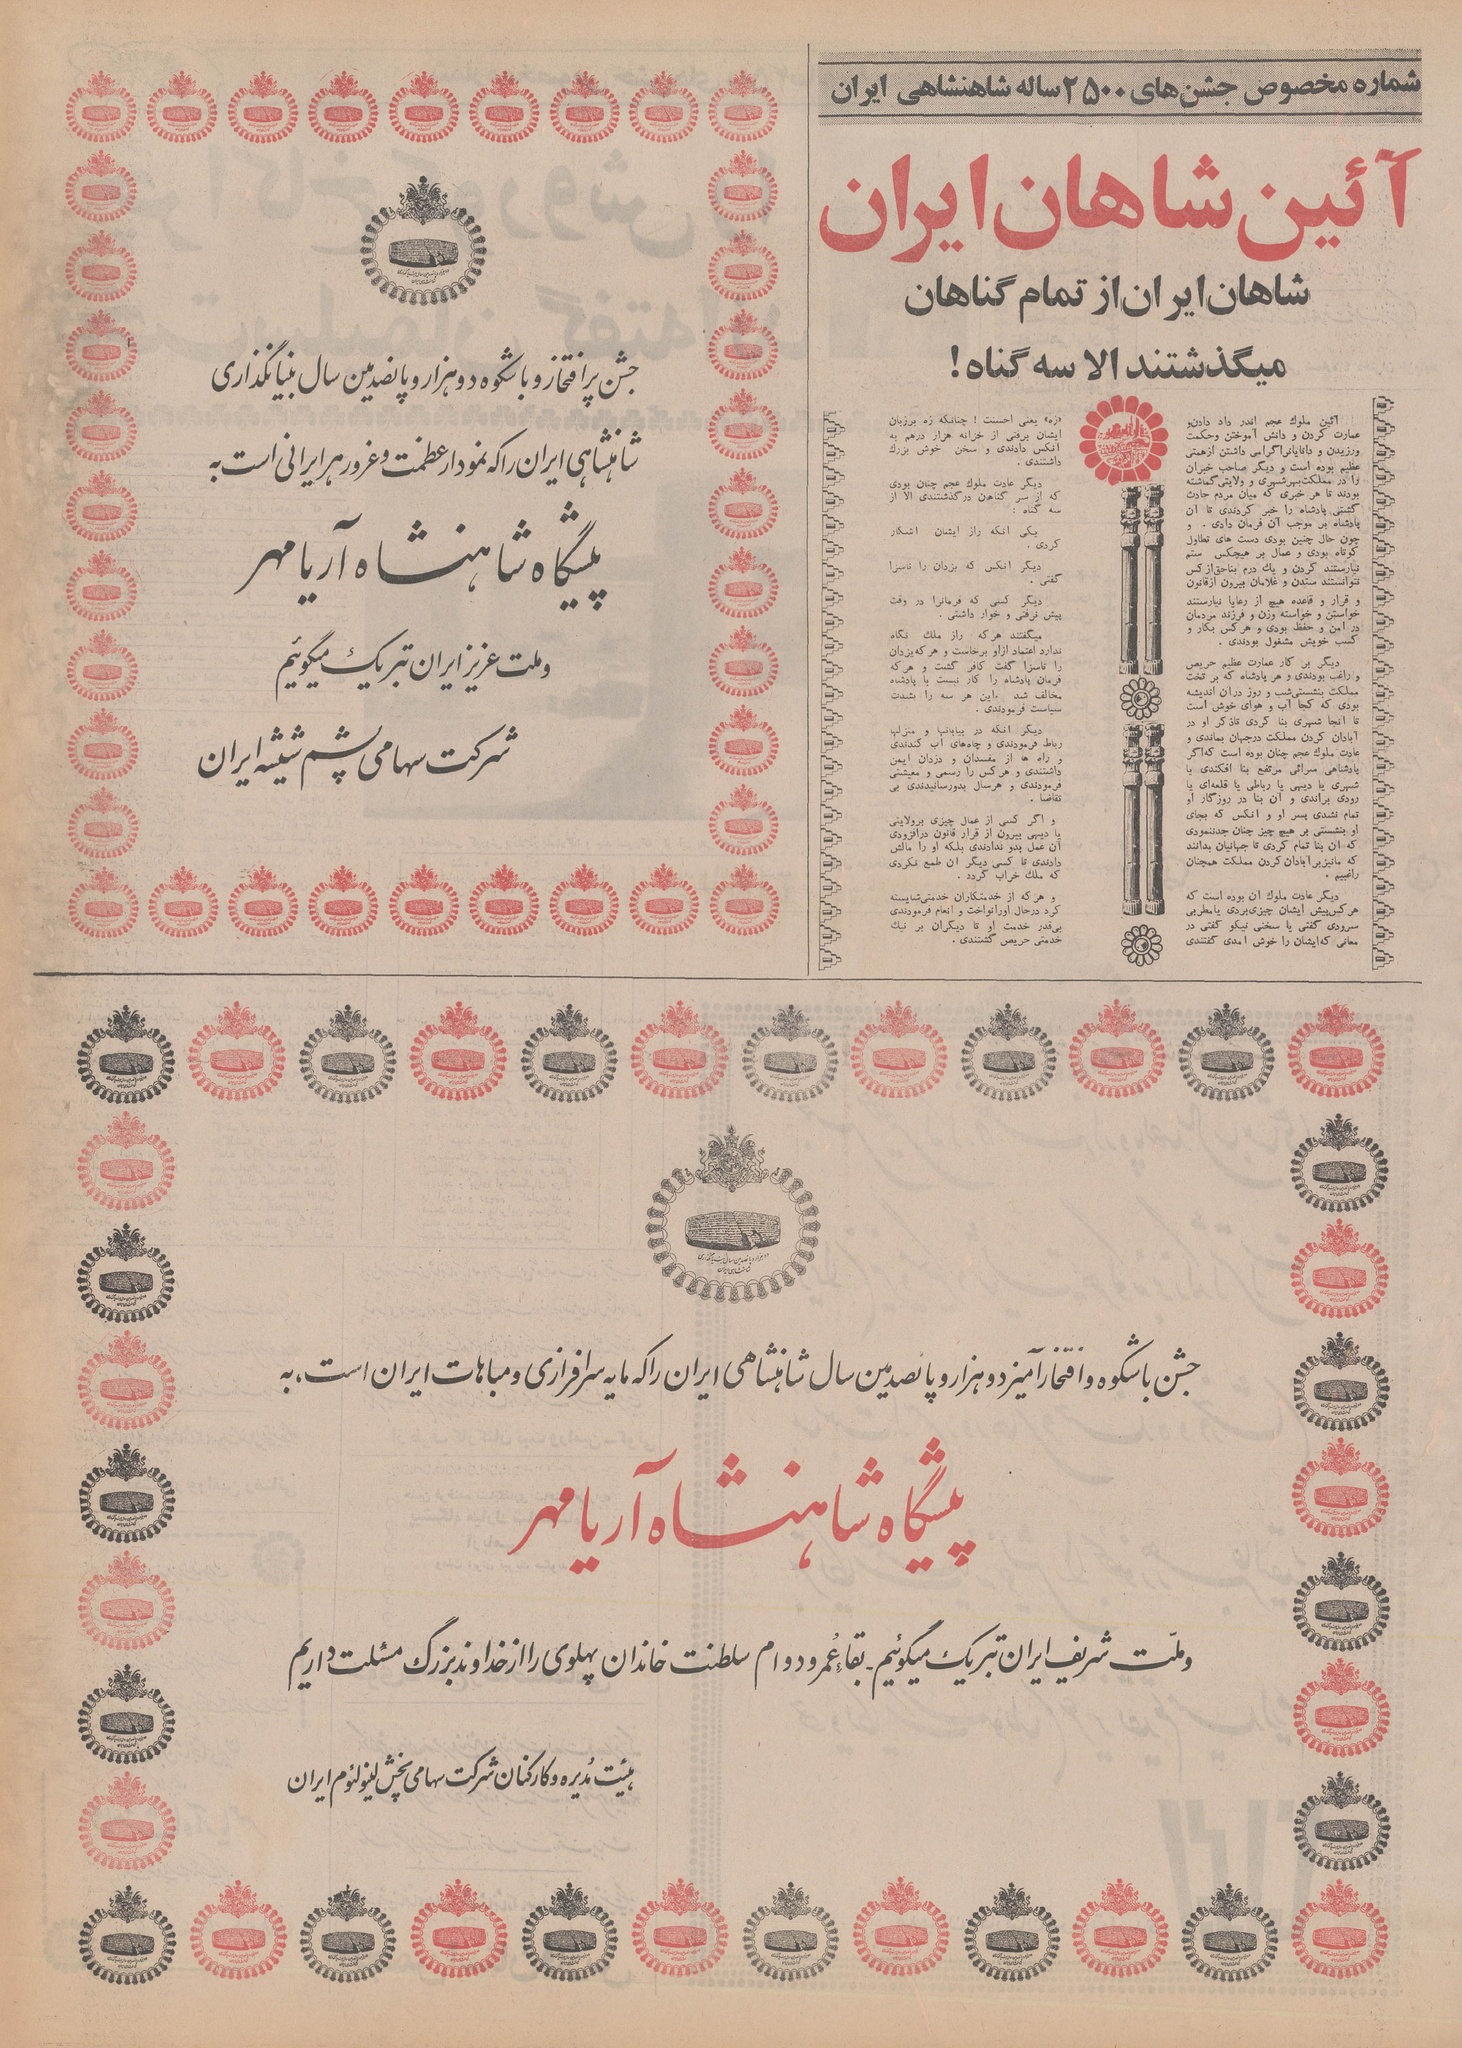 شماره مخصوص جشن‌های ۲۵۰۰ ساله شاهنشاهی ایران
آئین شاهان ایران
شاهان ایران از تمام گناهان
میگذشتند الا سه گناه!
آئین ملوک عجم اندر داد دادن و
عمارت کردن و دانش آموختن وحکمت
ورزیدن و دانایانراگرامی داشتن ازهمتی
عظیم بوده است و دیگر صاحب خبران
را در مملکت‌بهرشهری و ولایتی‌گماشته
بودند تا هر خبری که میان مردم حادث
گشتی پادشاه را خبر کردندی تا آن
پادشاه بر موجب آن فرمان دادی . و
چون حال چنین بودی دست های تطاول
کوتاه بودی و عمال بر هیچکس ستم
نیارستند کردن و یک درم بناحق‌ازکس
نتوانستند ستدن و غلامان بیرون ازقانون
و قرار و قاعده هیچ از رعایا نیارستند
خواستن و خواسته وزن و فرزند مردمان
در امن و حفظ بودی و هرکس بکار و
کسب خویش مشغول بودندی .
دیگر بر کار عمارت عظیم حریص
و راغب بودندی و هر پادشاه که بر تخت
مملکت بنشستی‌شب و روز دران اندیشه
بودی که کجا آب و هوای خوش است
تا آنجا شهری بنا کردی تاذکر او در
آبادان کردن مملکت درجهان بماندی و
عادت ملوک عجم چنان بوده است که‌اگر
پادشاهی سرائی مرتفع بنا افکندی یا
شهری یا دیهی یا رباطی یا قلعه‌ای یا
رودی براندی و آن بنا در روزگار او
تمام نشدی پسر او و آنکس که بجای
او بنشستی بر هیچ چیز چنان جدننمودی
که آن بنا تمام کردی تا جهانیان بدانند
که مانیزبرآبادان کردن مملکت همچنان
راغبیم .
دیگر عادت ملوک آن بوده است که
هرکس‌پیش ایشان چیزی‌بردی یامطربی
سرودی گفتی یا سخنی نیکو گفتی در
معانی که‌ایشان را خوش آمدی گفتندی
«زه» یعنی احسنت ! چنانکه زه برزبان
ایشان برفتی از خزانه هزار درهم به
آنکس دادندی و سخن خوش بزرگ
داشتندی .
دیگر عادت ملوک عجم چنان بودی
که از سر گناهان درگذشتندی الا از
سه گناه :
یکی آنکه راز ایشان آشکار
کردی .
دیگر آنکس که یزدان را ناسزا
گفتی .
دیگر کسی که فرمانرا در وقت
پیش نرفتی و خوار داشتی .
میگفتند هرکه راز ملک نگاه
ندارد اعتماد ازاو برخاست و هرکه‌یزدان
را ناسزا گفت کافر گشت و هرکه
فرمان پادشاه را کار نبست با پادشاه
مخالف شد . این هر سه را بشدت
سیاست فرمودندی .
دیگر آنکه در بیابانها و منزلها
رباط فرمودندی و چاه‌های آب کندندی
و راه ها از مفسدان و دزدان ایمن
داشتندی و هرکس را رسمی و معیشتی
فرمودندی و هرسال بدورسانیدندی بی
تقاضا .
و اگر کسی از عمال چیزی برولایتی
یا دیهی بیرون از قرار قانون درافزودی
آن عمل بدو ندادندی بلکه او را مالش
دادندی تا کسی دیگر آن طمع نکردی
که ملک خراب گردد .
و هرکه از خدمتکاران خدمتی‌شایسته
کرد درحال اورانواخت و انعام فرمودندی
بی‌قدر خدمت او تا دیگران بر نیک
خدمتی حریص گشتندی .
جشن پرافتخار و باشکوه دوهزار و پانصدمین سال بنیانگذاری
شاهنشاهی ایران را که نمودار عظمت و غرور هر ایرانی است به
پیشگاه شاهنشاه آریامهر
و ملت عزیز ایران تبریک میگوئیم
شرکت سهامی پشم شیشه ایران
دو هزار و پانصدمین سال بنیانگذاری
شاهنشاهی ایران
جشن باشکوه و افتخارآمیز دوهزار و پانصدمین سال شاهنشاهی ایران را که مایه سرافرازی و مباهات ایران است، به
پیشگاه شاهنشاه آریامهر
و ملّت شریف ایران تبریک میگوئیم - بقاءِ عُمر و دوام سلطنت خاندان پهلوی را از خداوند بزرگ مسئلت داریم
هیئت مُدیره و کارکنان شرکت سهامی پخش لینولئوم ایران